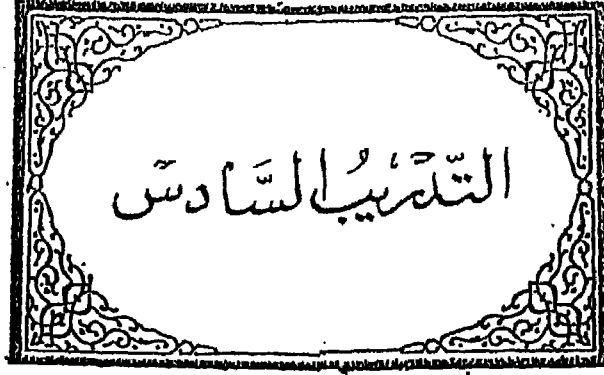 التَّدْرِيبُ السَّادسُ